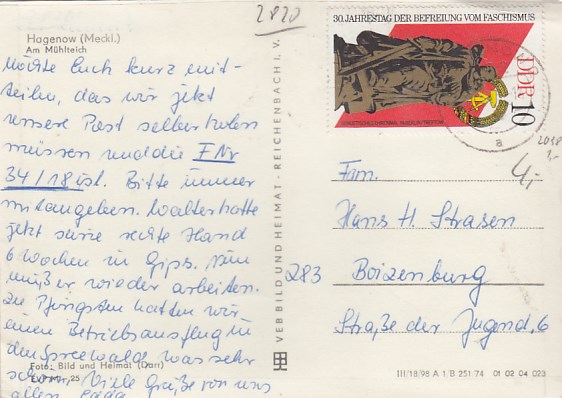 2820
Hagenow (Meckl.)
Am Mühlteich
Möchte Euch kurz mit-
teilen, das wir jetzt
unsere Post selberholen
müssen und die F Nr
34/18 ist. Bitte immer
mitangeben. Walter hatte
jetzt seine rechte Hand
6 Wochen in Gips. Nun
muß er wieder arbeiten.
Zu Pfingsten hatten wir
einen Betriebsausflug in
den Spreewald was sehr
schön. Viele Grüße von uns
allen
Foto: Bild und Heimat (Darr)
EVP MDN -,25
VEB BILD UND HEIMAT · REICHENBACH I. V.
30. JAHRESTAG DER BEFREIUNG VOM FASCHISMUS
DDR 10
a
2018
1,-
4,-
Fam.
Hans H. Strasen
283 Boizenburg
Straße der Jugend, 6
III/18/98 A 1/B 251/74 01 02 04 023